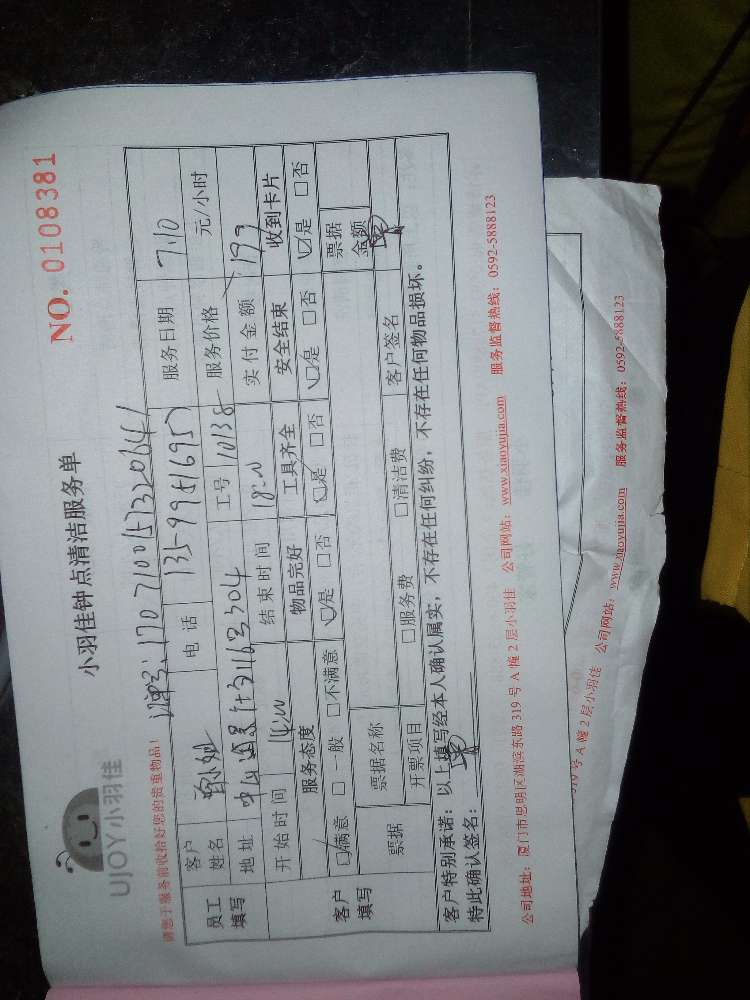 UJOY小羽佳
小羽佳钟点清洁服务单
NO. 0108381
请您于服务前收拾好您的贵重物品！
170710015732064
员工填写 客户姓名 电话 服务日期 7.10
地址 304 工号 10138 服务价格 元/小时
开始时间 14:00 结束时间 18:00 实付金额 199
客户填写 服务态度 物品完好 工具齐全 安全结束 收到卡片
☑满意 □一般 □不满意 ☑是 □否 ☑是 □否 ☑是 □否 ☑是 □否
票据 票据名称 票据金额
开票项目 □服务费 □清洁费 客户签名
客户特别承诺：以上填写经本人确认属实，不存在任何纠纷，不存在任何物品损坏。
特此确认签名：
公司地址：厦门市思明区湖滨东路 319 号 A 幢 2 层小羽佳 公司网站：www.xiaoyujia.com 服务监督热线：0592-5888123
319 号 A 幢 2 层小羽佳 公司网站：www.xiaoyujia.com 服务监督热线：0592-5888123